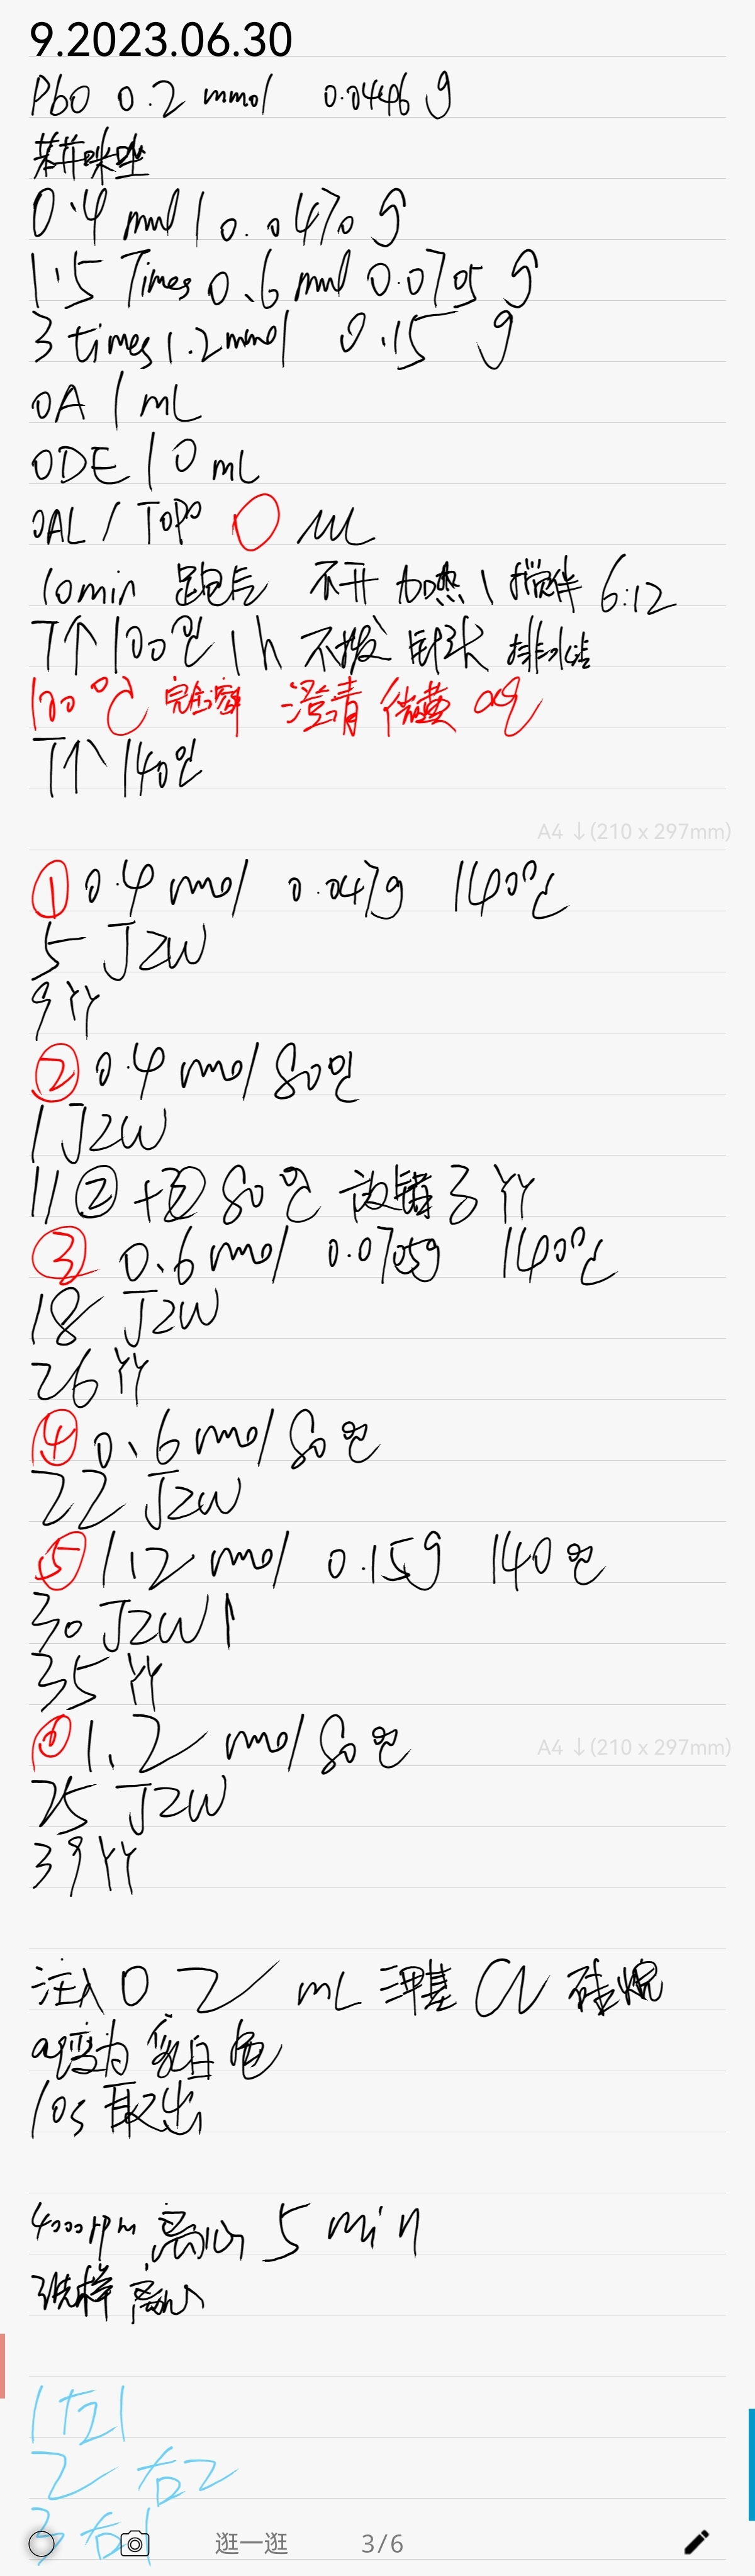 9.2023.06.30
PbO 0.2 mmol 0.0446 g
苯并咪唑
0.4 mmol 0.0470 g
1.5 Times 0.6 mmol 0.0705 g
3 times 1.2 mmol 0.15 g
OA 1 mL
ODE 10 mL
OAL / TOPO 0 mL
10min 跑后 不开 加热、搅拌 6:12
T个100℃ 1h 不拨 针头 排水
100℃ 完全溶解 澄清 微黄 aq
T个 140℃
A4 ↓(210 x 297mm)
① 0.4 mmol 0.047g 140℃
5 JZW
9 YY
② 0.4 mmol 80℃
1 JZW
11 ②+② 80℃ 放错了 YY
③ 0.6 mmol 0.0705g 140℃
18 JZW
26 YY
④ 0.6 mmol 80℃
22 JZW
⑤ 1.2 mmol 0.15g 140℃
30 JZW
35 YY
⑥ 1.2 mmol 80℃
A4 ↓(210 x 297mm)
25 JZW
39 YY
注入 0.2 mL 三甲基 Cl 硅烷
aq变为 乳白色
10s 取出
4000rpm 离心 5 min
洗样 离心
1 左1
2 右2
3 右1
逛一逛 3/6